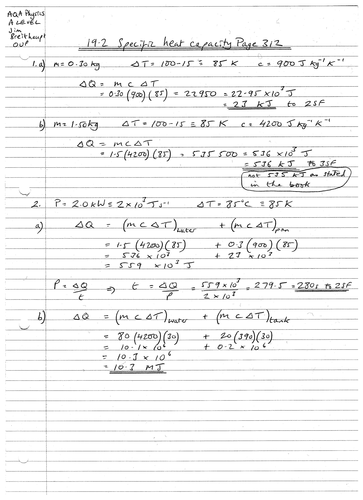 AQA Physics
A LEVEL
Jim
Breithaupt
OUP
19.2 Specific heat capacity Page 312
1.a) m = 0.30kg ΔT = 100-15 = 85 K c = 900 J kg⁻¹ K⁻¹
ΔQ = m c ΔT
= 0.30 (900) (85) = 22950 = 22.95 x 10³ J
= 23 kJ to 2SF
b) m = 1.50kg ΔT = 100-15 = 85 K c = 4200 J kg⁻¹ K⁻¹
ΔQ = m c ΔT
= 1.5 (4200) (85) = 535 500 = 536 x 10³ J
= 536 kJ to 3SF
not 535 kJ as stated
in the book
2. P = 2.0 kW = 2 x 10³ J s⁻¹ ΔT = 85°C = 85 K
a) ΔQ = (m c ΔT)water + (m c ΔT)pan
= 1.5 (4200) (85) + 0.3 (900) (85)
= 536 x 10³ + 23 x 10³
= 559 x 10³ J
P = ΔQ/t ⇒ t = ΔQ/P = 559 x 10³/2 x 10³ = 279.5 = 280s to 2SF
b) ΔQ = (m c ΔT)water + (m c ΔT)tank
= 80 (4200) (30) + 20 (390) (30)
= 10.1 x 10⁶ + 0.2 x 10⁶
= 10.3 x 10⁶
= 10.3 MJ